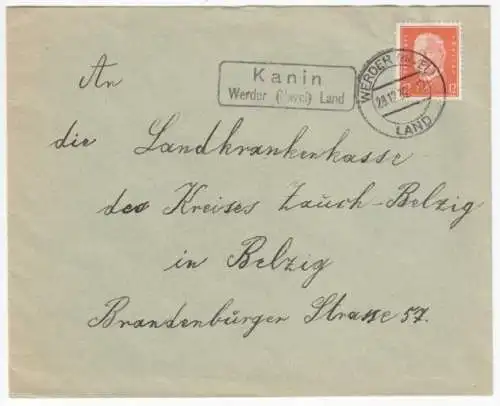 Kanin
Werder (Havel) Land
WERDER (HAVEL)
LAND
12
An
die Landkrankenkasse
des Kreises Zauch-Belzig
in Belzig
Brandenburger Strasse 57.